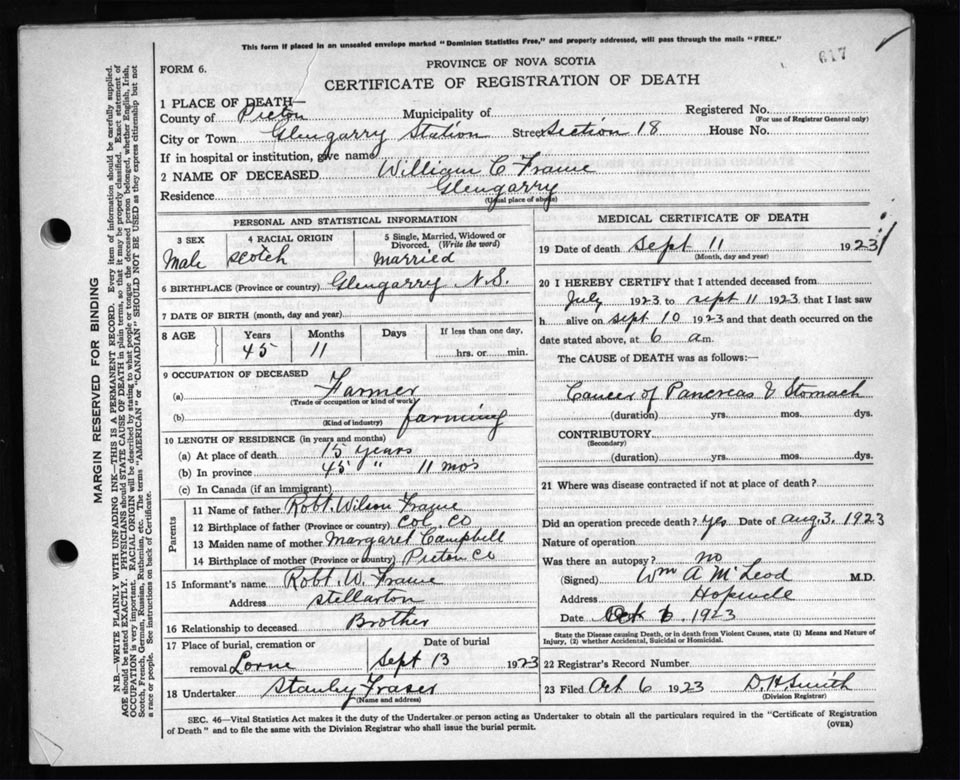 This form if placed in an unsealed envelope marked "Dominion Statistics Free," and properly addressed, will pass through the mails "FREE."
617
FORM 6.
PROVINCE OF NOVA SCOTIA
CERTIFICATE OF REGISTRATION OF DEATH
1 PLACE OF DEATH—
County of Pictou Municipality of Registered No.
(For use of Registrar General only)
City or Town Glengarry Station Street Section 18 House No.
If in hospital or institution, give name
2 NAME OF DECEASED William C Frame
Residence Glengarry
(Usual place of abode)
PERSONAL AND STATISTICAL INFORMATION
3 SEX Male
4 RACIAL ORIGIN Scotch
5 Single, Married, Widowed or Divorced. (Write the word) married
6 BIRTHPLACE (Province or country) Glengarry N.S.
7 DATE OF BIRTH (month, day and year)
8 AGE Years Months Days If less than one day,
45 11 hrs. or min.
9 OCCUPATION OF DECEASED
(a) Farmer
(Trade or occupation or kind of work)
(b) farming
(Kind of industry)
10 LENGTH OF RESIDENCE (in years and months)
(a) At place of death 15 years
(b) In province 45 " 11 mos
(c) In Canada (if an immigrant)
Parents
11 Name of father Robt. Wilson Frame
12 Birthplace of father (Province or country) Col. Co
13 Maiden name of mother Margaret Campbell
14 Birthplace of mother (Province or country) Pictou Co
15 Informant's name Robt. W. Frame
Address Stellarton
16 Relationship to deceased Brother
17 Place of burial, cremation or Date of burial
removal Lorne Sept 13 1923
18 Undertaker Stanley Fraser
(Name and address)
MEDICAL CERTIFICATE OF DEATH
19 Date of death Sept 11 1923
(Month, day and year)
20 I HEREBY CERTIFY that I attended deceased from
July 1923 to Sept 11 1923 that I last saw
h alive on Sept 10 1923 and that death occurred on
date stated above, at 6 a.m.
The CAUSE of DEATH was as follows:—
Cancer of Pancreas & Stomach
(duration) yrs. mos. dys.
CONTRIBUTORY
(Secondary)
(duration) yrs. mos. dys.
21 Where was disease contracted if not at place of death?
Did an operation precede death? Yes Date of Aug 3, 1923
Nature of operation
Was there an autopsy? no
(Signed) Wm A McLeod M.D.
Address Hopewell
Date Oct 6 1923
State the Disease causing Death, or in death from Violent Causes, state (1) Means and Nature of
Injury, (2) whether Accidental, Suicidal or Homicidal.
22 Registrar's Record Number
23 Filed Oct 6 1923 D. H. Smith
(Division Registrar)
SEC. 46—Vital Statistics Act makes it the duty of the Undertaker or person acting as Undertaker to obtain all the particulars required in the "Certificate of Registration
of Death" and to file the same with the Division Registrar who shall issue the burial permit.
(OVER)
MARGIN RESERVED FOR BINDING
N.B.—WRITE PLAINLY WITH UNFADING INK—THIS IS A PERMANENT RECORD. Every item of information should be carefully supplied.
AGE should be stated EXACTLY. PHYSICIANS should STATE CAUSE OF DEATH in plain terms, so that it may be properly classified. Exact statement of
OCCUPATION is very important. RACIAL ORIGIN will be described by stating to what people or tongue the deceased person belonged, whether English, Irish,
Scotch, French, German, Russian, Ruthenian, etc. The terms "AMERICAN" or "CANADIAN" SHOULD NOT BE USED as they express citizenship but not
a race or people. See instructions on back of Certificate.